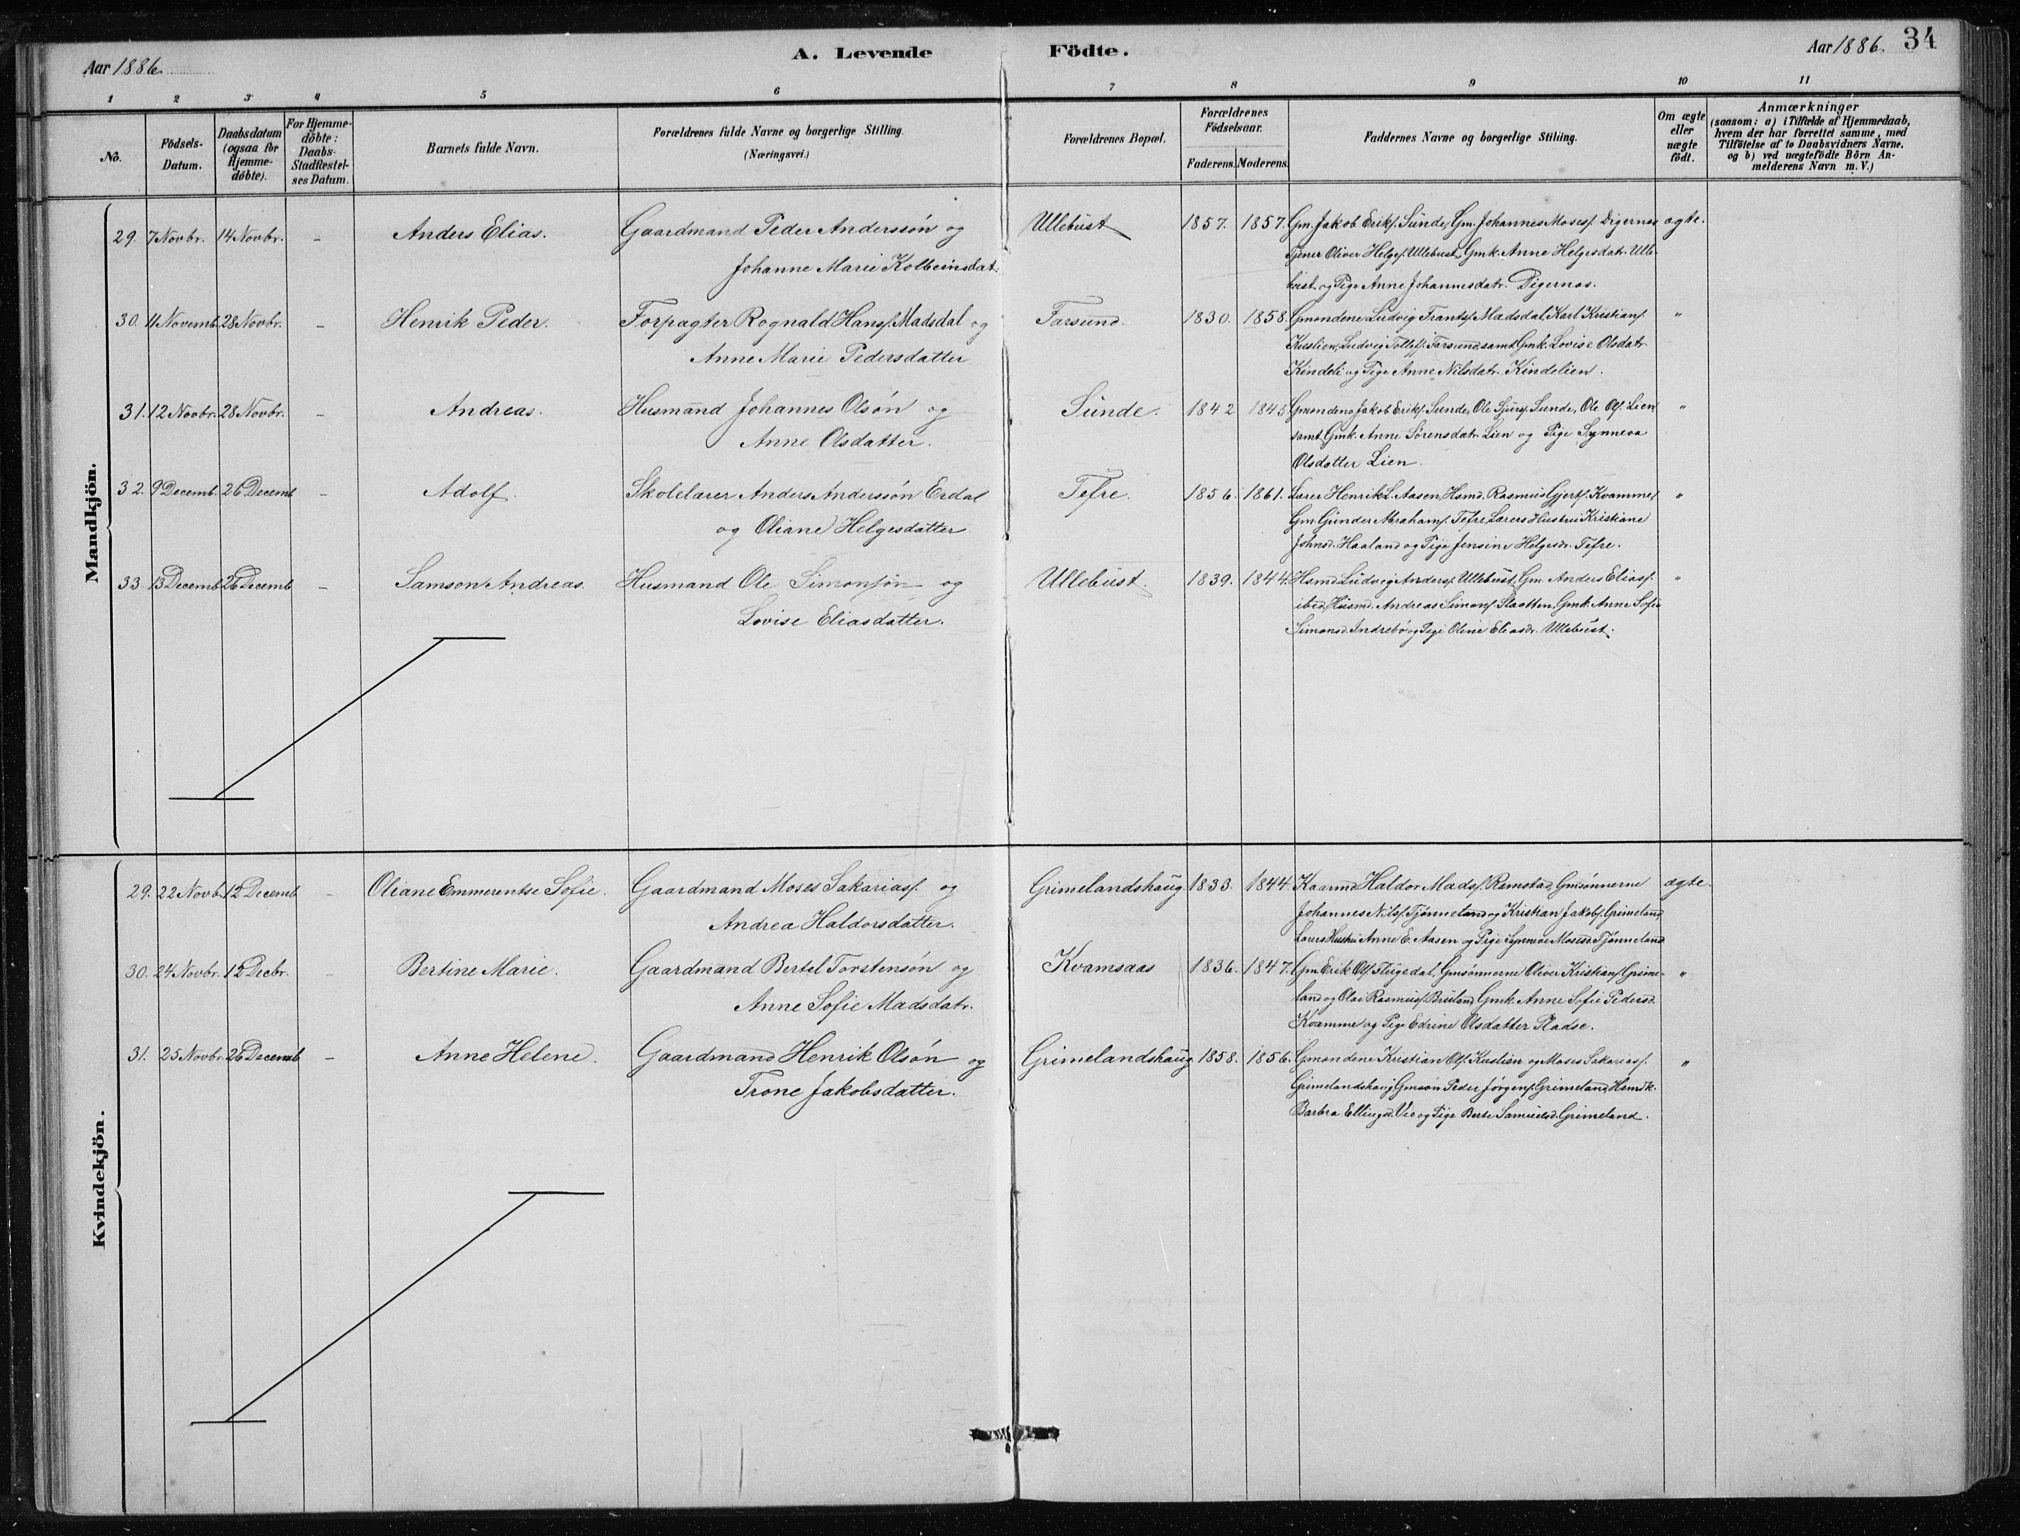 Aar 1886. A. Levende Födte. Aar 1886. 34
1 2 3 4 5 6 7 8 9 10 11
No.
Födsels-Datum.
Daabsdatum (ogsaa for Hjemme-döbte).
For Hjemme-döbte: Daabs-Stadfæstel-ses Datum.
Barnets fulde Navn.
Forældrenes fulde Navne og borgerlige Stilling.
(Næringsvei.)
Forældrenes Bopæl.
Forældrenes Födselsaar.
Faderens. Moderens.
Faddernes Navne og borgerlige Stilling.
Om ægte eller uægte födt.
Anmærkninger
(saasom: a) i Tilfælde af Hjemmedaab,
hvem der har forrettet samme, med
Tilföielse af to Daabsvidners Navne.
og b) ved uægtefödte Börn An-
melderens Navn m. V.)
Mandkjön.
29. 7 Novbr. 14 Novbr. – Anders Elias. Gaardmand Peder Anderssön og Ullebust 1857. 1857. Gm. Jakob Eriks. Sunde, Gm. Johannes Moses. Digernæs ægte.
Johanne Marie Kolbeinsdat. Tjener Oliver Helges. Ullebust, Gmk. Anne Helgesdatr. Ulle-
bust og Pige Anne Johannesdatr. Digernæs.
30. 11 Novemb. 28 Novbr. – Henrik Peder. Forpagter Rognald Hans. Madsdal og Farsund. 1830. 1858. Gmændene Ludvig Frants. Madsdal, Karl Kristians. "
Anne Marie Pedersdatter Kuslien, Ludvig Tollefs. Farsund, samt Gmk. Lovise Olsdatr.
Kindeli og Pige Anne Nilsdatr. Kindelien.
31. 12 Novbr. 28 Novbr. – Andreas. Husmand Johannes Olsön og Sunde. 1842 1845. Gmændene Jakob Eriks. Sunde, Ole Sjurs. Sunde, Ole Ols. Lien, "
Anne Olsdatter. samt Gmk. Anne Sörensdatr. Lien og Pige Synneva
Olsdatter Lien.
32. 9 Decemb. 26 Decemb. – Adolf. Skolelærer Anders Anderssön Erdal Tefre. 1856. 1861. Lærer Henrik L. Aasen, Hsmd. Rasmus Gjerts. Kvamme, "
og Oliane Helgesdatter Gm. Gunder Abrahams. Tefre, Lærers Hustru Kristiane
Johnsd. Haaland og Pige Jensine Helgesd. Tefre.
33. 13 Decemb. 26 Decemb. – Samson Andreas. Husmand Ole Simonsön og Ullebust. 1839. 1844. Hsmd. Ludvig Anders. Ullebust, Gm. Anders Elias. "
Lovise Eliasdatter. ibid, Husmd. Andreas Simons. Slaatten, Gmk. Anne Sofie
Simonsd. Andrebö og Pige Oline Eliasdr. Ullebust.
Kvindekjön.
29. 22 Novbr. 12 Decemb. – Oliane Emmerentse Sofie. Gaardmand Moses Sakarias. og Grimelandshaug 1833. 1844. Kaarmd. Haldor Mads. Ramstad, Gmsönnerne ægte.
Andrea Haldorsdatter. Johannes Nils. Tjönneland og Kristian Jakobs. Grimeland,
Lærers Hustru Anne E. Aasen og Pige Synneve Mosesd. Tjönneland
30. 24 Novbr. 12 Decbr. – Bertine Marie. Gaardmand Bertel Torstensön og Kvamsaas 1836. 1847. Gm. Erik Ols. Steigedal, Gmsönnerne Oliver Kristians. Grime- "
Anne Sofie Madsdatr. land og Olai Rasmus. Bruland, Gmk. Anne Sofie Pedersd.
Kvamme og Pige Edrine Olsdatter Stadse.
31. 25 Novbr. 26 Decemb. – Anne Helene. Gaardmand Henrik Olsön og Grimelandshaug 1858. 1856. Gmændene Kristian Ols. Kuslien og Moses Sakarias. "
Trone Jakobsdatter. Grimelandshaug, Gmsön Peder Jörgens. Grimeland, Hsmdk.
Barbra Ellingsd. Vie og Pige Berte Samuelsd. Grimeland.